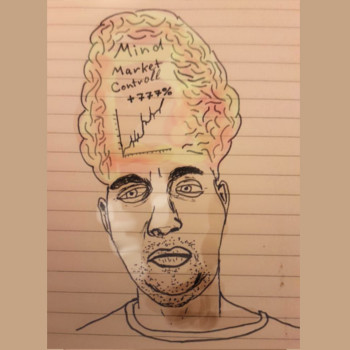 Mind
Market
Controll
+777%